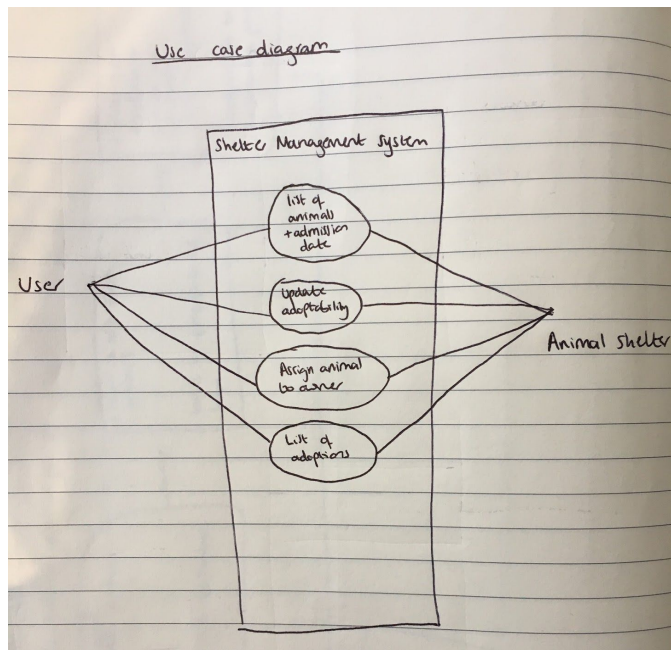 Use case diagram
Shelter Management system
list of
animals
+admission
date
User
Update
adoptability
Animal shelter
Assign animal
to owner
List of
adoptions